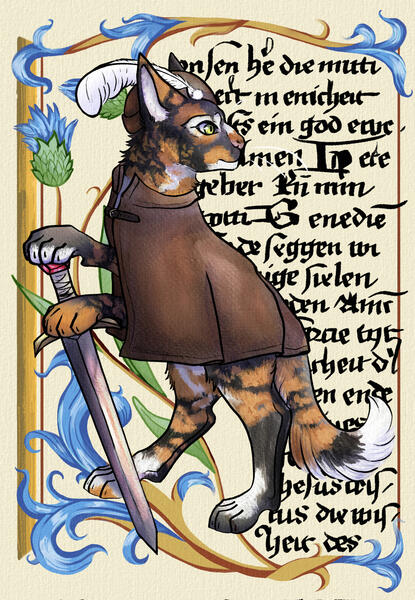 onsen he die mitti
ert in enicheit
es ein god etwe
amen In ete
geber In min
otti Benedie
de seggen wi
ige sielen
den Amt
cheit d'
en ende
hesus cris
tus die wis
heit des